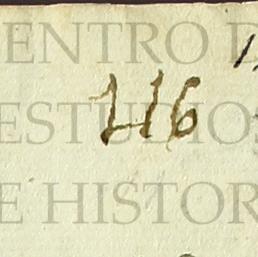 ENTRO D
116
ESTUDIOS
E HISTOR